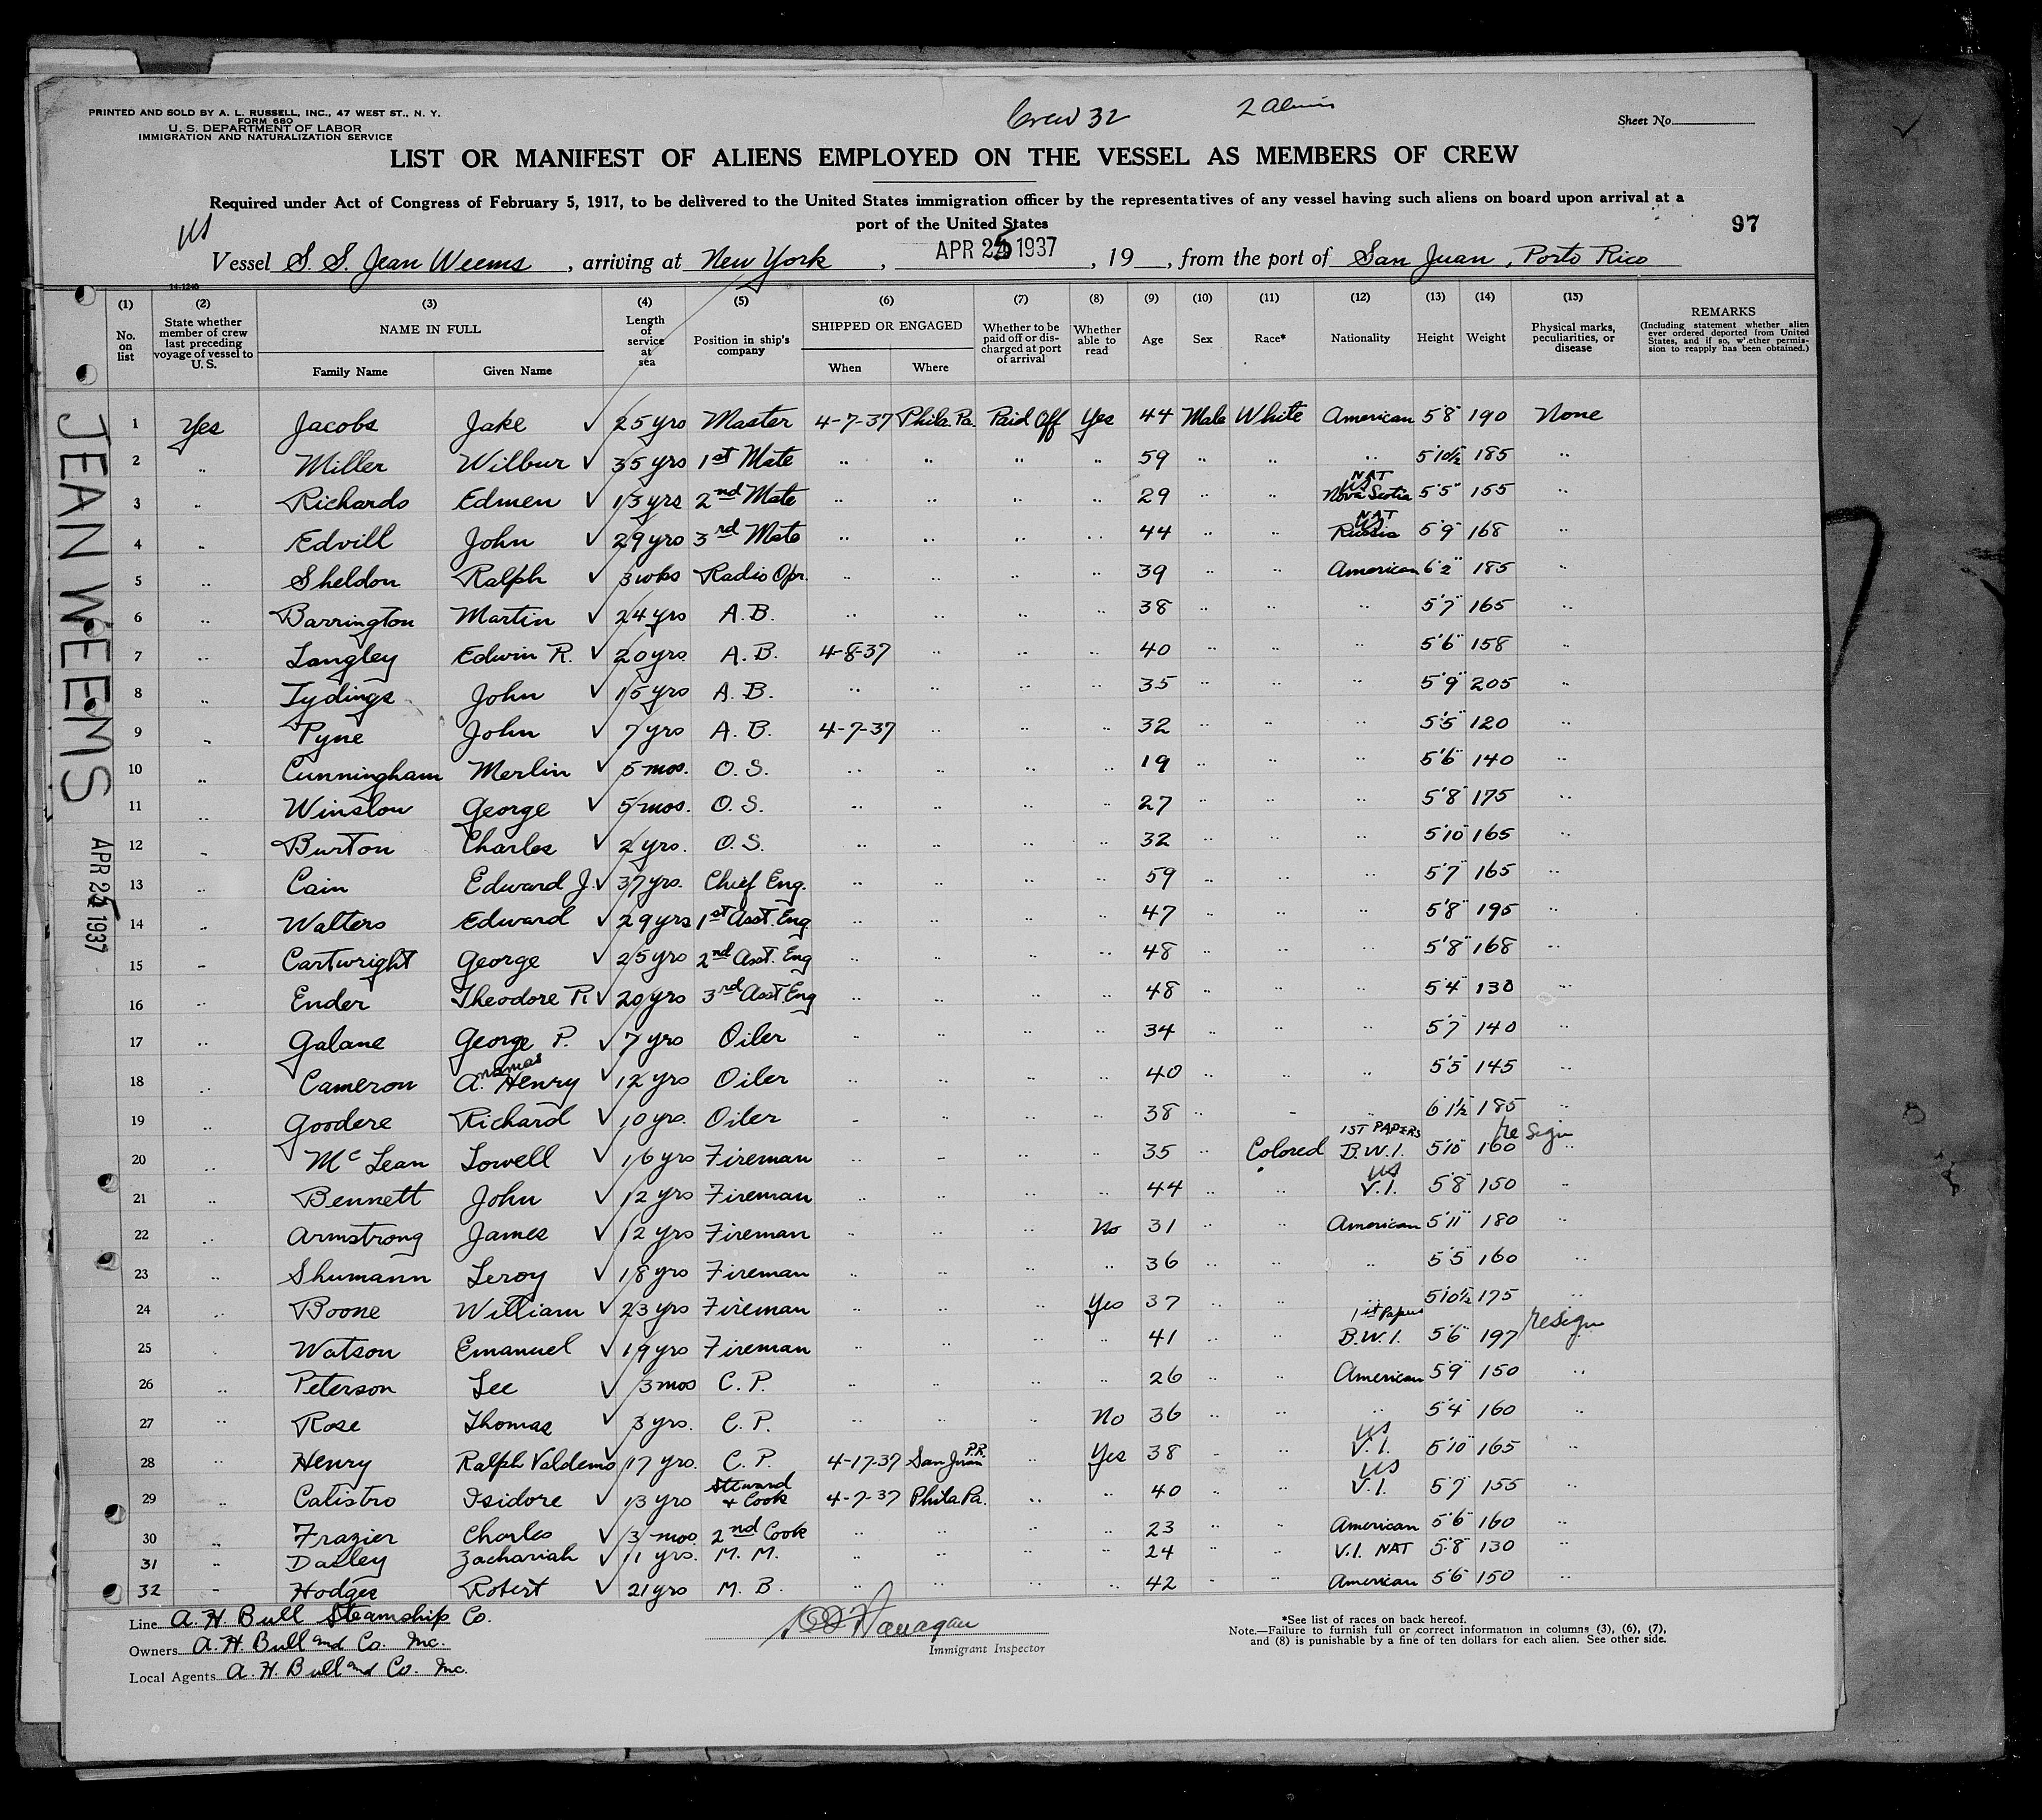 PRINTED AND SOLD BY A. L. RUSSELL, INC., 47 WEST ST., N. Y.
FORM 680
U. S. DEPARTMENT OF LABOR
IMMIGRATION AND NATURALIZATION SERVICE
Crew 32
Sheet No.
LIST OR MANIFEST OF ALIENS EMPLOYED ON THE VESSEL AS MEMBERS OF CREW
Required under Act of Congress of February 5, 1917, to be delivered to the United States immigration officer by the representatives of any vessel having such aliens on board upon arrival at a
port of the United States
97
US
Vessel S. S. Jean Weems, arriving at New York, APR 25 1937, 19 , from the port of San Juan, Porto Rico
14-1240
(1) No. on list
(2) State whether member of crew last preceding voyage of vessel to U. S.
(3) NAME IN FULL Family Name Given Name
(4) Length of service at sea
(5) Position in ship's company
(6) SHIPPED OR ENGAGED When Where
(7) Whether to be paid off or discharged at port of arrival
(8) Whether able to read
(9) Age
(10) Sex
(11) Race*
(12) Nationality
(13) Height
(14) Weight
(15) Physical marks, peculiarities, or disease
REMARKS (Including statement whether alien ever ordered deported from United States, and if so, whether permission to reapply has been obtained.)
JEAN WEEMS
APR 25 1937
1 Yes Jacobs Jake √ 25 yrs Master 4-7-37 Phila. Pa. Paid Off Yes 44 Male White American 5'8" 190 None
2 " Miller Wilbur √ 35 yrs 1st Mate " " " " 59 " " " 5'10½ 185 "
3 " Richards Edmen √ 13 yrs 2nd Mate " " " " 29 " " NAT US Nova Scotia 5'5" 155 "
4 " Edvill John √ 29 yrs 3rd Mate " " " " 44 " " NAT US Russia 5'9" 168 "
5 " Sheldon Ralph √ 3 wks Radio Opr. " " " " 39 " " American 6'2" 185 "
6 " Barrington Martin √ 24 yrs A. B. " " " " 38 " " " 5'7" 165 "
7 " Langley Edwin R. √ 20 yrs A. B. 4-8-37 " " " 40 " " " 5'6" 158 "
8 " Tydings John √ 15 yrs A. B. " " " " 35 " " " 5'9" 205 "
9 " Pyne John √ 7 yrs A. B. 4-7-37 " " " 32 " " " 5'5" 120 "
10 " Cunningham Merlin √ 5 mos. O. S. " " " " 19 " " " 5'6" 140 "
11 " Winslow George √ 5 mos. O. S. " " " " 27 " " " 5'8" 175 "
12 " Burton Charles √ 2 yrs. O. S. " " " " 32 " " " 5'10" 165 "
13 " Cain Edward J. √ 37 yrs. Chief Eng. " " " " 59 " " " 5'7" 165 "
14 " Walters Edward √ 29 yrs 1st Asst. Eng. " " " " 47 " " " 5'8" 195 "
15 " Cartwright George √ 25 yrs 2nd Asst. Eng " " " " 48 " " " 5'8" 168 "
16 " Ender Theodore R √ 20 yrs 3rd Asst Eng " " " " 48 " " " 5'4" 130 "
17 " Galane George P. √ 7 yrs Oiler " " " " 34 " " " 5'7" 140 "
18 " Cameron A. Henry √ 12 yrs Oiler " " " " 40 " " " 5'5" 145 "
19 " Goodere Richard √ 10 yrs. Oiler " " " " 38 " " " 6'1½ 185 "
20 " McLean Lowell √ 16 yrs Fireman " " " " 35 " Colored 1ST PAPERS B.W.I. 5'10" 160 resign "
21 " Bennett John √ 12 yrs Fireman " " " " 44 " " US V.I. 5'8" 150 "
22 " Armstrong James √ 12 yrs Fireman " " " No 31 " " American 5'11" 180 "
23 " Shumann Leroy √ 18 yrs Fireman " " " " 36 " " " 5'5" 160 "
24 " Boone William √ 23 yrs Fireman " " " Yes 37 " " " 5'10½ 175 "
25 " Watson Emanuel √ 19 yrs Fireman " " " " 41 " " 1st Papers B.W.I. 5'6" 197 resign
26 " Peterson Lee √ 3 mos C. P. " " " " 26 " " American 5'9" 150 "
27 " Rose Thomas √ 3 yrs. C. P. " " " No 36 " " " 5'4" 160 "
28 " Henry Ralph Valdemo √ 17 yrs. C. P. 4-17-37 San Juan P.R. " Yes 38 " " US V.I. 5'10" 165 "
29 " Calistro Isidore √ 13 yrs Steward & Cook 4-7-37 Phila Pa. " " 40 " " US V.I. 5'7" 155 "
30 " Frazier Charles √ 3 mos 2nd Cook " " " " 23 " " American 5'6" 160 "
31 " Dasley Zachariah √ 11 yrs. M. M. " " " " 24 " " V.I. NAT 5'8" 130 "
32 " Hodges Robert √ 21 yrs M. B. " " " " 42 " " American 5'6" 150 "
Line A. H. Bull Steamship Co.
Owners A. H. Bull and Co. Inc.
Local Agents A. H. Bull and Co. Inc.
Immigrant Inspector
*See list of races on back hereof.
Note.—Failure to furnish full or correct information in columns (3), (6), (7),
and (8) is punishable by a fine of ten dollars for each alien. See other side.